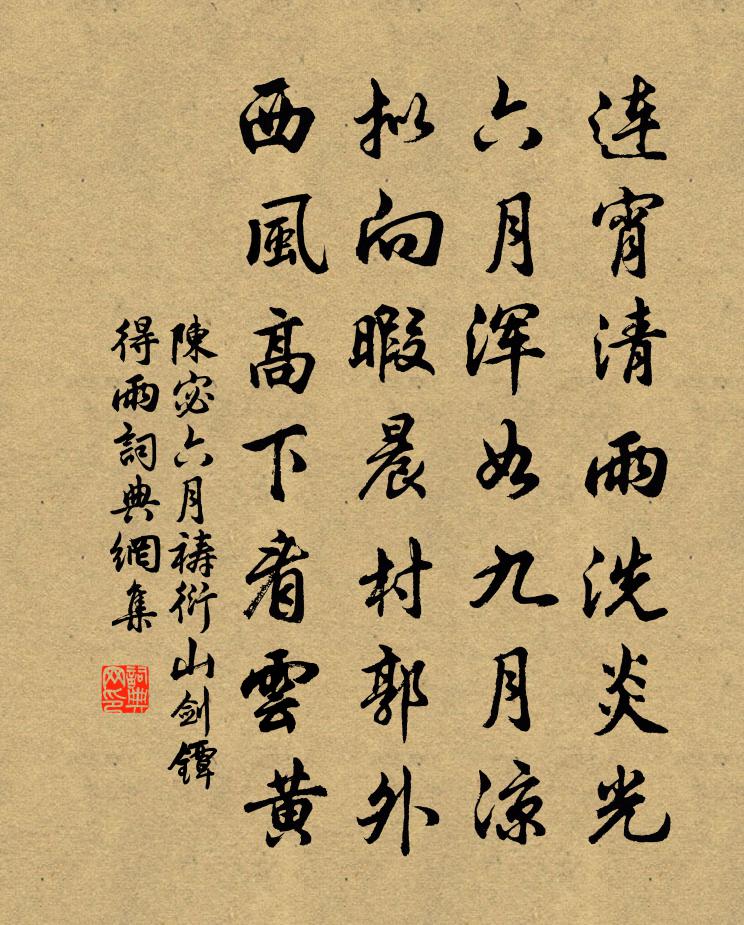 連宵清雨洗炎光
六月浑如九月涼
拟向暇晨村郭外
西風高下看雲黄
陳宓六月禱衍山剑鐔
得雨詞典網集
詞典网印